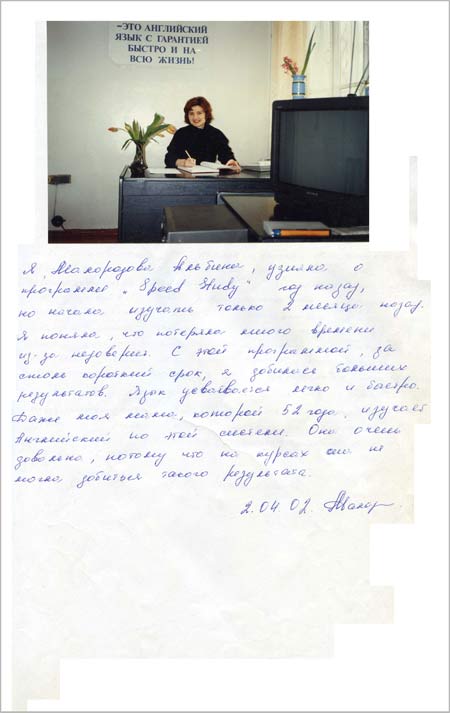 -ЭТО АНГЛИЙСКИЙ
ЯЗЫК С ГАРАНТИЕЙ
БЫСТРО И НА-
ВСЮ ЖИЗНЬ!
Я, Альбина, узнала о
программе "Speed Study" год назад,
но начала изучать только 2 месяца назад.
Я поняла, что потеряла много времени
из-за недоверия. С этой программой, за
столь короткий срок, я добилась больших
результатов. Язык усваивается легко и быстро.
Даже моя мама, которой 52 года, изучает
Английский по этой системе. Она очень
довольна, потому что на курсах она не
могла добиться такого результата.
2.04.02.